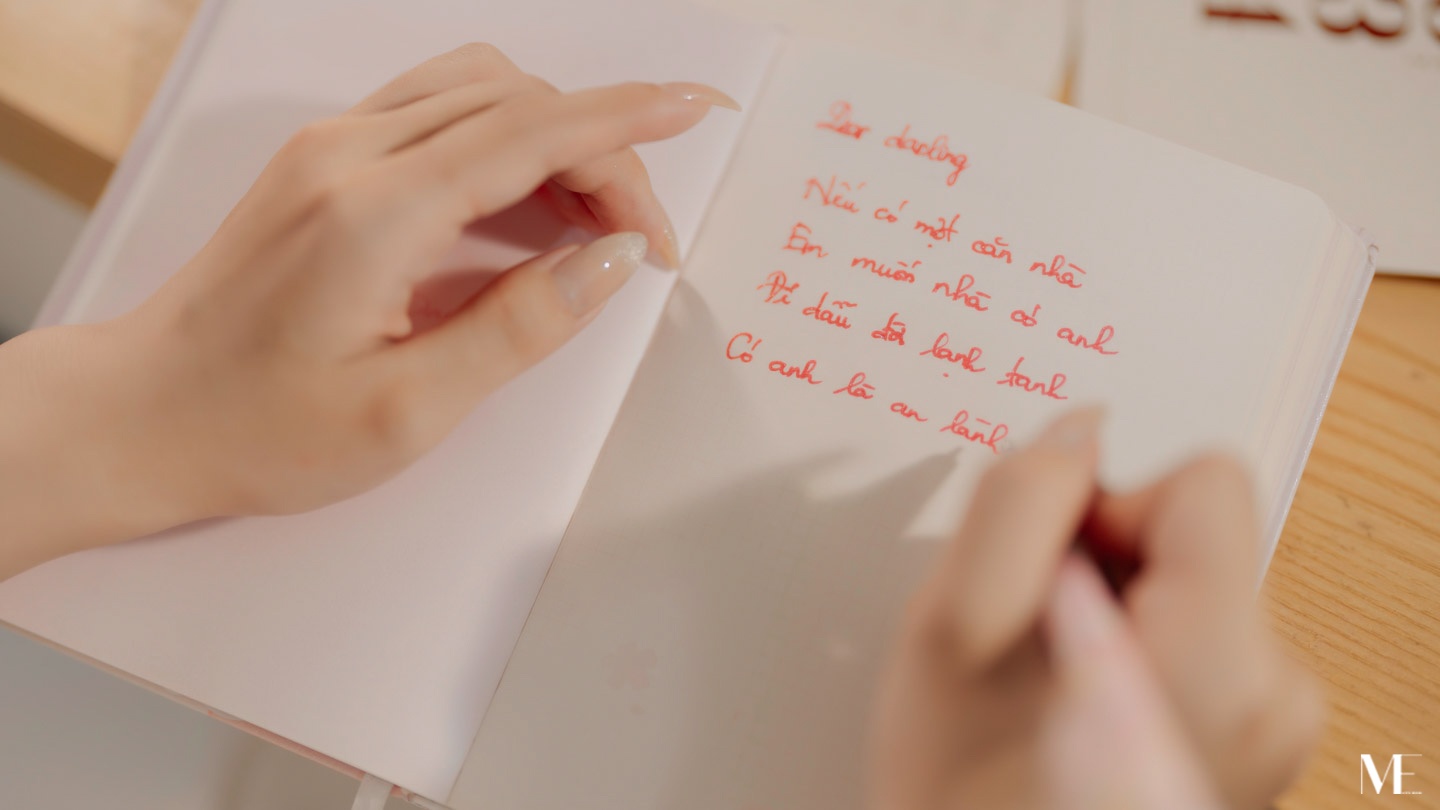 Dear darling
Nếu có một căn nhà
Em muốn nhà có anh
Để dẫu đời lạnh tanh
Có anh là an lành
ME